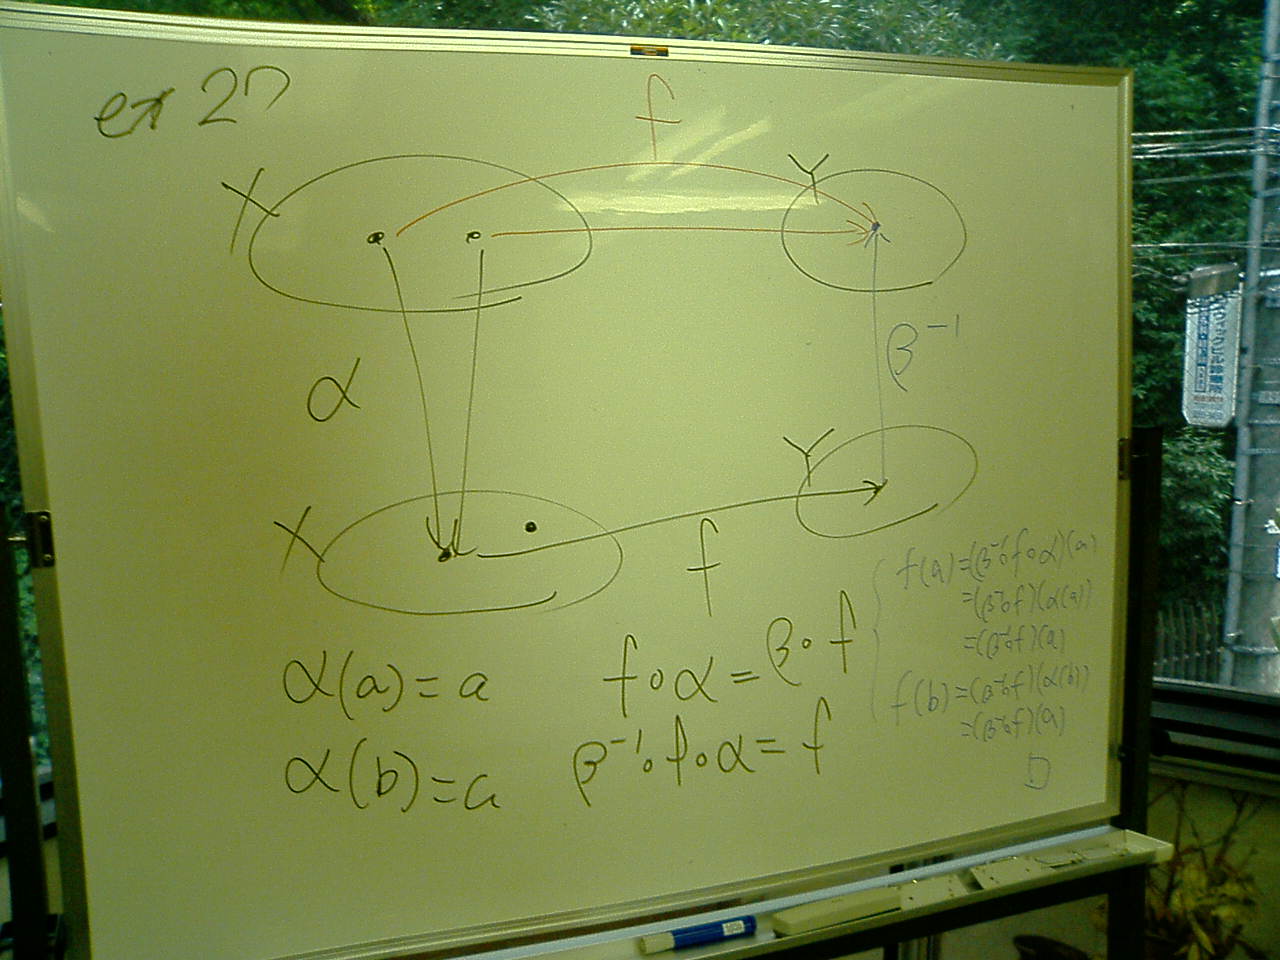 ex 27
f
X
Y
α
β⁻¹
X
Y
f
α(a)=a
α(b)=a
f∘α=β∘f
β⁻¹∘f∘α=f
f(a)=(β⁻¹∘f∘α)(a)
=(β⁻¹∘f)(α(a))
=(β⁻¹∘f)(a)
f(b)=(β⁻¹∘f)(α(b))
=(β⁻¹∘f)(a)
□